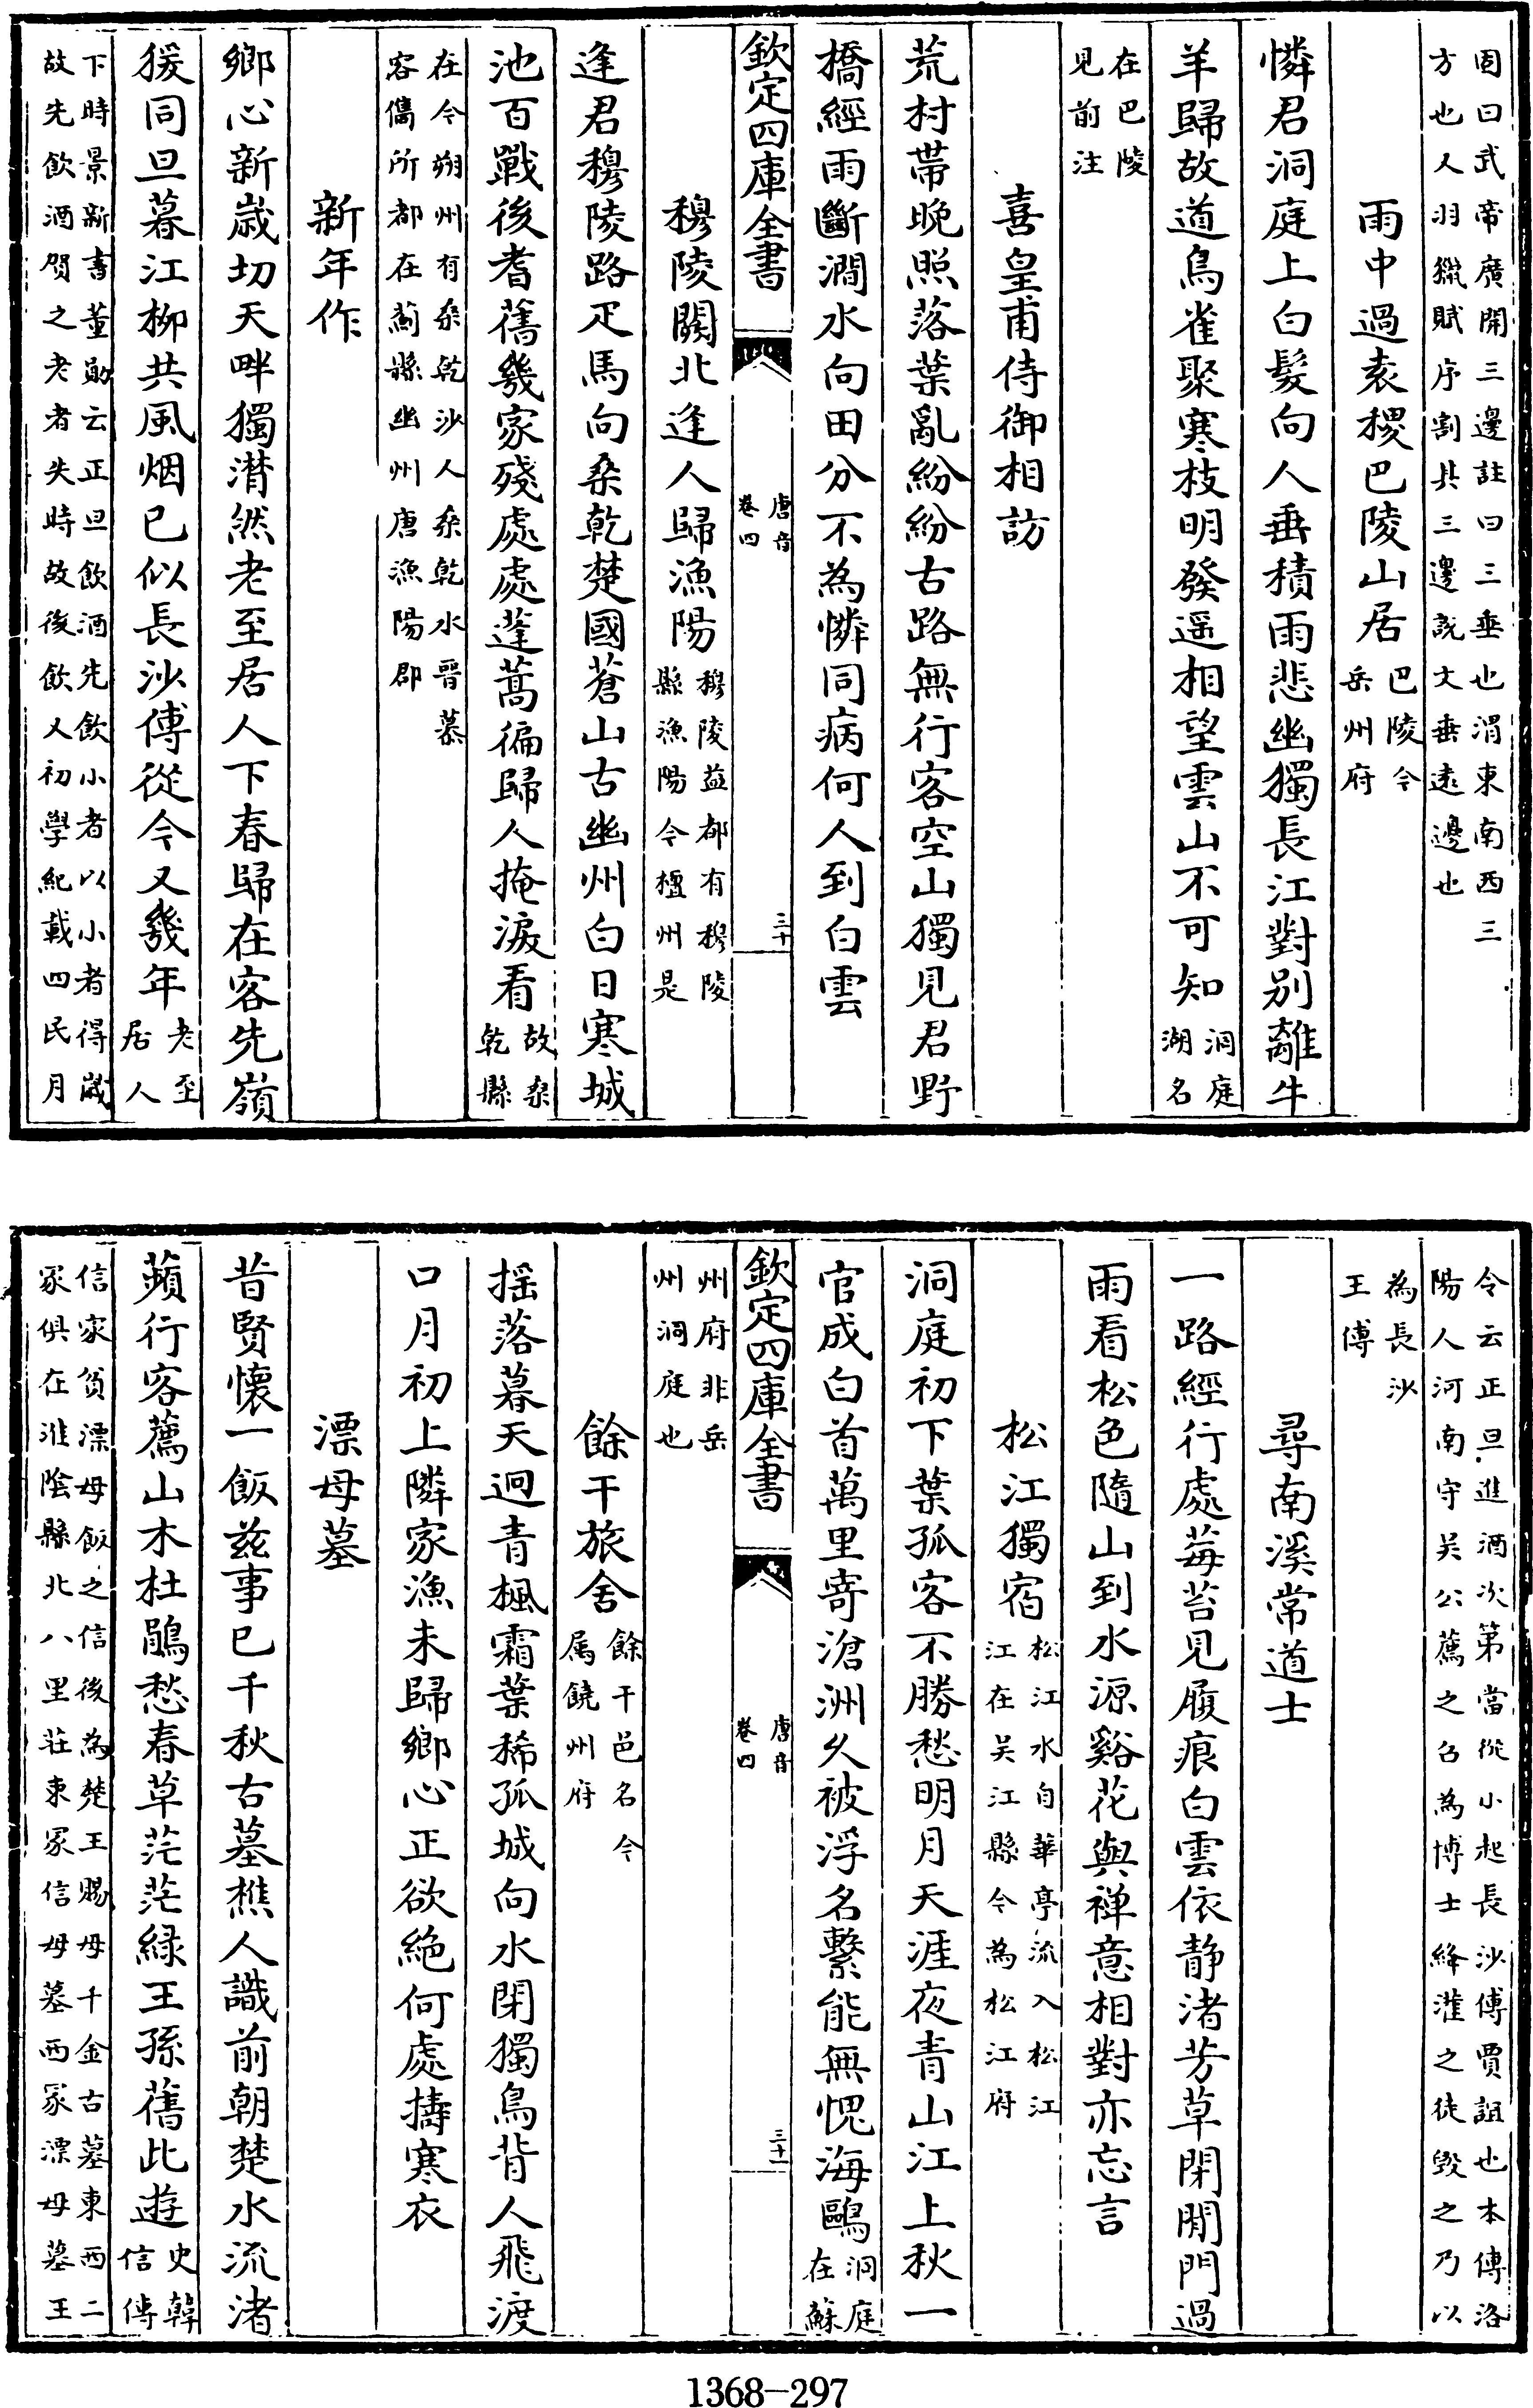 固曰武帝廣開三邊註曰三垂也渭東南西三
方也人羽獵賦序割其三邊說文垂逺邊也
雨中過袁稷巴陵山居巴陵今岳州府
憐君洞庭上白髮向人垂積雨悲幽獨長江對别離牛
羊歸故道鳥雀聚寒枝明發遥相望雲山不可知洞庭湖名
在巴陵見前注
喜皇甫侍御相訪
荒村帯晚照落葉亂紛紛古路無行客空山獨見君野
橋經雨斷澗水向田分不為憐同病何人到白雲
欽定四庫全書
唐音
卷四
三十
穆陵關北逢人歸漁陽穆陵益都有穆陵縣漁陽今檀州是
逢君穆陵路疋馬向桑乾楚國蒼山古幽州白日寒城
池百戰後耆舊幾家殘處處蓬蒿徧歸人掩淚看故桑乾縣
在今朔州有桑乾沙人桑乾水晉慕容儁所都在薊縣幽州唐漁陽郡
新年作
鄉心新歳切天畔獨潸然老至居人下春歸在客先嶺
猨同旦暮江柳共風烟已似長沙傅從今又幾年老至居人
下時景新書董勛云正旦飲酒先飲小者以小者得歳
故先飲酒賀之老者失時故後飲又初學紀載四民月
令云正旦進酒次第當從小起長沙傅賈誼也本傳洛
陽人河南守吴公薦之召為博士絳灌之徒毁之乃以
為長沙王傅
尋南溪常道士
一路經行處莓苔見履痕白雲依静渚芳草閉閒門過
雨看松色隨山到水源谿花與禅意相對亦忘言
松江獨宿松江水自華亭流入松江江在吴江縣今為松江府
洞庭初下葉孤客不勝愁明月天涯夜青山江上秋一
官成白首萬里寄滄洲久被浮名繫能無愧海鷗洞庭在蘇
欽定四庫全書
唐音
卷四
三十一
州府非岳州洞庭也
餘干旅舍餘干邑名今属饒州府
揺落暮天迥青楓霜葉稀孤城向水閉獨鳥背人飛渡
口月初上隣家漁未歸鄉心正欲絶何處擣寒衣
漂母墓
昔賢懷一飯兹事已千秋古墓樵人識前朝楚水流渚
蘋行客薦山木杜鵑愁春草茫茫緑王孫舊此遊史韓信傳
信家貧漂母飯之信後為楚王賜母千金古墓東西二
冢俱在淮陰縣北八里莊東冢信母墓西冢漂母墓王
1368—297